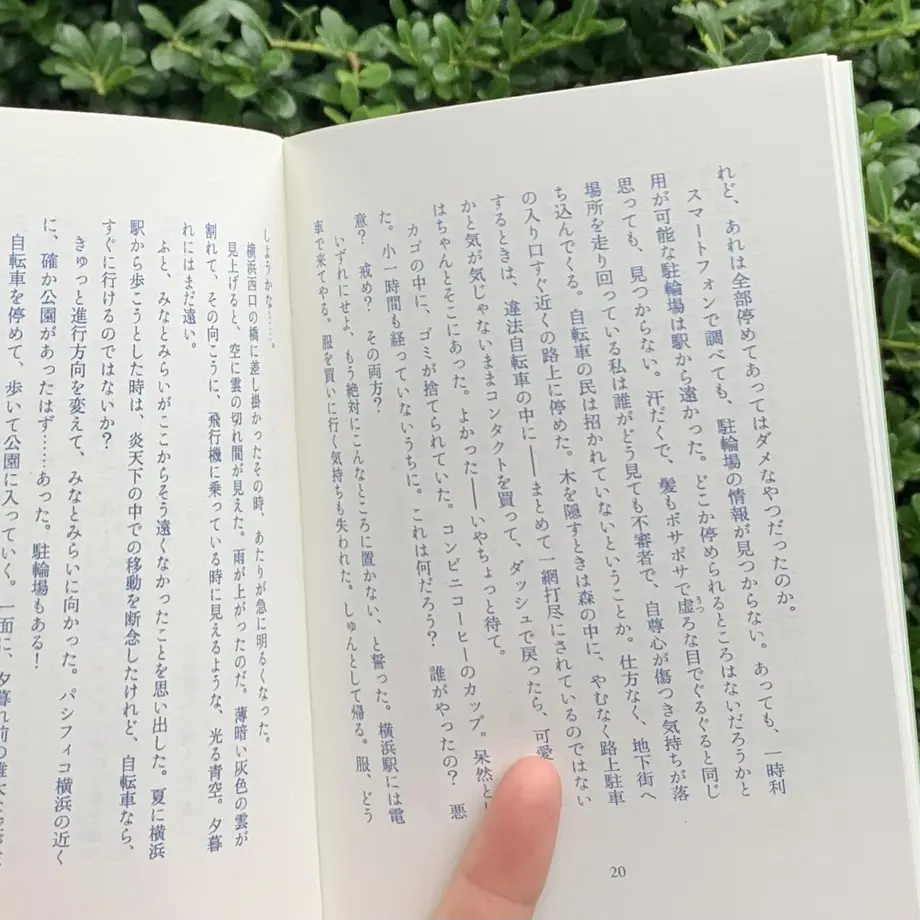 れど、あれは全部停めてあってはダメなやつだったのか。
スマートフォンで調べても、駐輪場の情報が見つからない。あっても、一時利
用が可能な駐輪場は駅から遠かった。どこか停められるところはないだろうかと
思っても、見つからない。汗だくで、髪もボサボサで虚ろな目でぐるぐると同じ
うつ
場所を走り回っている私は誰がどう見ても不審者で、自尊心が傷つき気持ちが落
ち込んでくる。自転車の民は招かれていないということか。仕方なく、地下街へ
の入り口すぐ近くの路上に停めた。木を隠すときは森の中に、やむなく路上駐車
するときは、違法自転車の中に――まとめて一網打尽にされているのではない
かと気が気じゃないままコンタクトを買って、ダッシュで戻ったら、可愛
はちゃんとそこにあった。よかった――いやちょっと待て。
カゴの中に、ゴミが捨てられていた。コンビニコーヒーのカップ。呆然とし
た。小一時間も経っていないうちに。これは何だろう？　誰がやったの？　悪
意？　戒め？　その両方？
いずれにせよ、もう絶対にこんなところに置かない、と誓った。横浜駅には電
車で来てやる。服を買いに行く気持ちも失われた。しゅんとして帰る。服、どう
20
しようかな……。
横浜西口の橋に差し掛かったその時、あたりが急に明るくなった。
見上げると、空に雲の切れ間が見えた。雨が上がったのだ。薄暗い灰色の雲が
割れて、その向こうに、飛行機に乗っている時に見えるような、光る青空。夕暮
れにはまだ遠い。
ふと、みなとみらいがここからそう遠くなかったことを思い出した。夏に横浜
駅から歩こうとした時は、炎天下の中での移動を断念したけれど、自転車なら、
すぐに行けるのではないか？
きゅっと進行方向を変えて、みなとみらいに向かった。パシフィコ横浜の近く
に、確か公園があったはず……あった。駐輪場もある！
自転車を停めて、歩いて公園に入っていく。一面に、夕暮れ前の